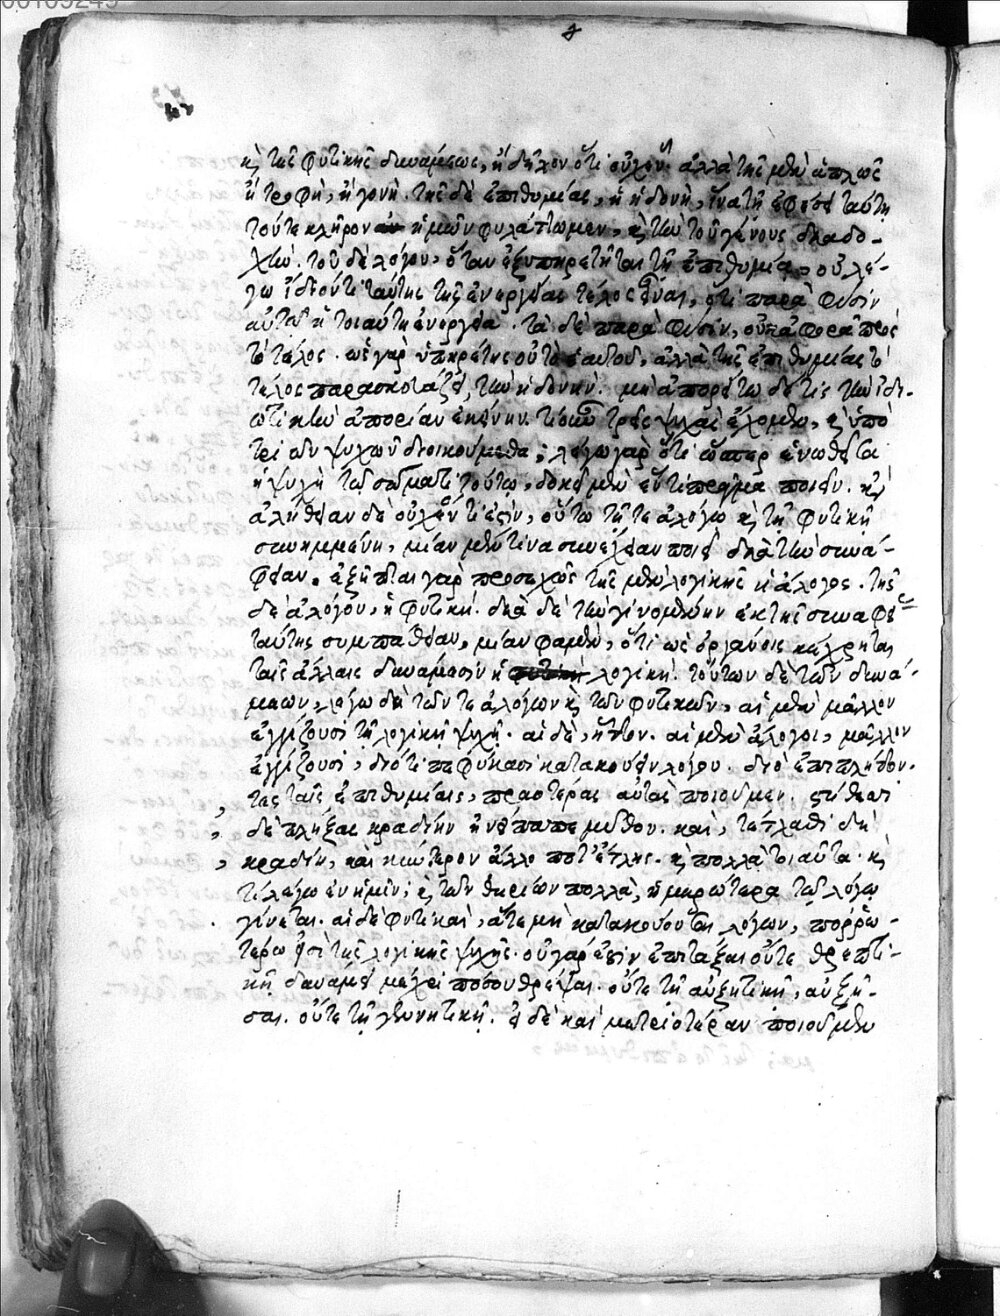 00105249
κὶ τῆς φυτικῆς δυνάμεως, ἢ δῆλον ὅτι οὐχ ἓν ἀλλὰ τῆς μὲν ἁπλῶς
ἡ τροφὴ, ἡ γονὴ. τῆς δὲ ἐπιθυμίας, ἡ ἡδονὴ, ἵνα τῇ ἐφέσει ταύτῃ
τὸν τε κλῆρον ἡμῶν φυλάττωμεν, κὶ τὴν τοῦ γένους διαδο-
χήν. τοῦ δὲ λόγου, ὅταν ἐξυπηρετῆται τῇ ἐπιθυμίᾳ, οὐ λέ-
γω ἰδεόν τι ταύτης τῆς ἐνεργείας τέλος εἶναι, ὅτι παρὰ φύσιν
αὐτοῦ ἡ τοιαύτη ἐνέργεια. τὰ δὲ παρὰ φύσιν, οὐκ ἀφορᾶ πρὸς
τὸ τέλος. ὡς γὰρ ὑπηρέτης οὐ τὸ ἑαυτοῦ, ἀλλὰ τῆς ἐπιθυμίας τὸ
τέλος παρασκευάζει, τὴν ἡδονήν. μὴ ἀπορείτω δέ τις τὴν ἰδι-
ωτικὴν ἀπορίαν ἐκείνην. τί οὖν τρεῖς ψυχὰς ἔχομεν, κὶ ὑπὸ
τριῶν ψυχῶν διοικούμεθα; λέγω γὰρ ὅτι ὥσπερ ἑνωθεῖσα
ἡ ψυχὴ τῷ σώματι τούτῳ, δοκεῖ μὲν ἕν τι πρᾶγμα ποιεῖν. κατ'
ἀλήθειαν δὲ οὐχ ἕν τί ἐστιν, οὕτω τῇ τε ἀλόγῳ κὶ τῇ φυτικῇ
συνημμένη, μίαν μέν τινα συνέχειαν ποιεῖ διὰ τὴν συνά-
φειαν. ἐξῆπται γὰρ προσεχῶς τῆς μὲν λογικῆς ἡ ἄλογος. τῆς
δὲ ἀλόγου, ἡ φυτική. διὰ δὲ τὴν γινομένην ἐκ τῆς συναφεί-
ταύτης συμπάθειαν, μίαν φαμὲν, ὅτι ὡς ὀργάνοις κέχρηται
ταῖς ἄλλαις δυνάμεσιν ἡ λογική. τούτων δὲ τῶν δυνά-
μεων, λέγω δὴ τῶν τε ἀλόγων κὶ τῶν φυτικῶν, αἱ μὲν μᾶλλον
ἐγγίζουσι τῇ λογικῇ ψυχῇ. αἱ δὲ, ἧττον. αἱ μὲν ἄλογοι, μᾶλλον
ἐγγίζουσι, διότι πεφύκασι κατακούειν λόγου. διὸ ἐπιπλήττον-
τες ταῖς ἐπιθυμίαις, πραοτέρας αὐτὰς ποιοῦμεν. στῆθος
δὲ πλήξας κραδίην ἠνίπαπε μύθῳ. καὶ, τέτλαθι δὴ
κραδίη, καὶ κύντερον ἄλλο ποτ' ἔτλης. κὶ πολλὰ τοιαῦτα. κὶ
τί λέγω ἐν ἡμῖν; κὶ τῶν θηρίων πολλὰ, ἡμερώτερα τῷ λόγῳ
γίνεται. αἱ δὲ φυτικαὶ, ἅτε μὴ κατακούουσαι λόγων, πορρω-
τέρω εἰσὶ τῆς λογικῆς ψυχῆς. οὐ γάρ ἐστιν ἐπιτάξαι οὔτε θρεπτι-
κῇ δυνάμει μέχρι πόσου θρέψαι. οὔτε τῇ αὐξητικῇ, αὐξῆ-
σαι. οὔτε τῇ γεννητικῇ. εἰ δὲ καὶ μετριωτέραν ποιοῦμεν